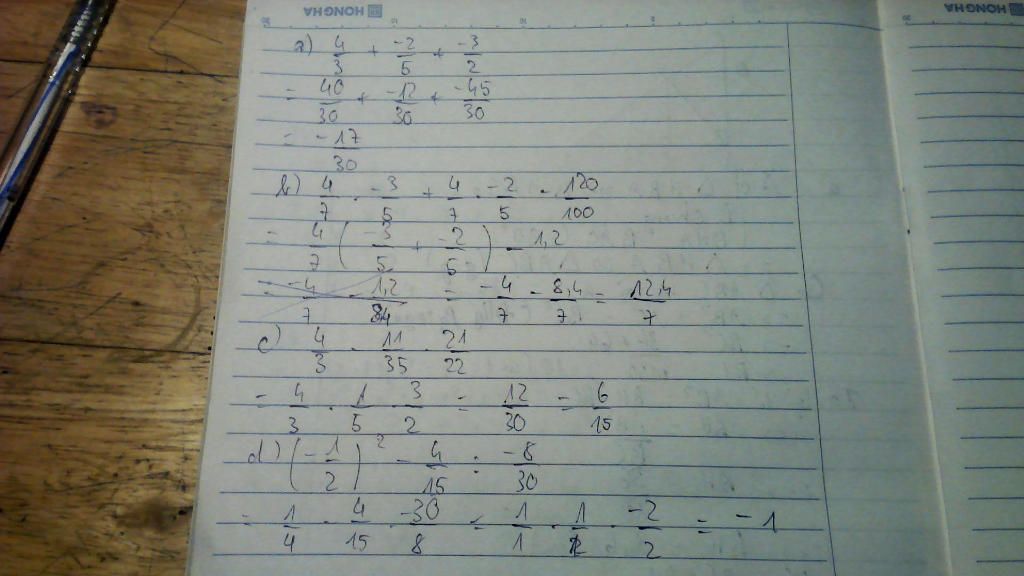 HONG HA HONG HA
a) 4/3 + -2/5 + -3/2
= 40/30 + -12/30 + -45/30
= -17/30
b) 4/7 . -3/5 + 4/7 . -2/5 - 120/100
= 4/7 ( -3/5 + -2/5 ) - 1,2
= -4/7 - 8,4/7 = 12,4/7
c) 4/3 . 11/35 . 21/22
= 4/3 . 1/5 . 3/2 = 12/30 = 6/15
d) ( -1/2 )² - 4/15 : -8/30
= 1/4 . 4/15 . -30/8 = 1/1 . 1/2 . -2/2 = -1